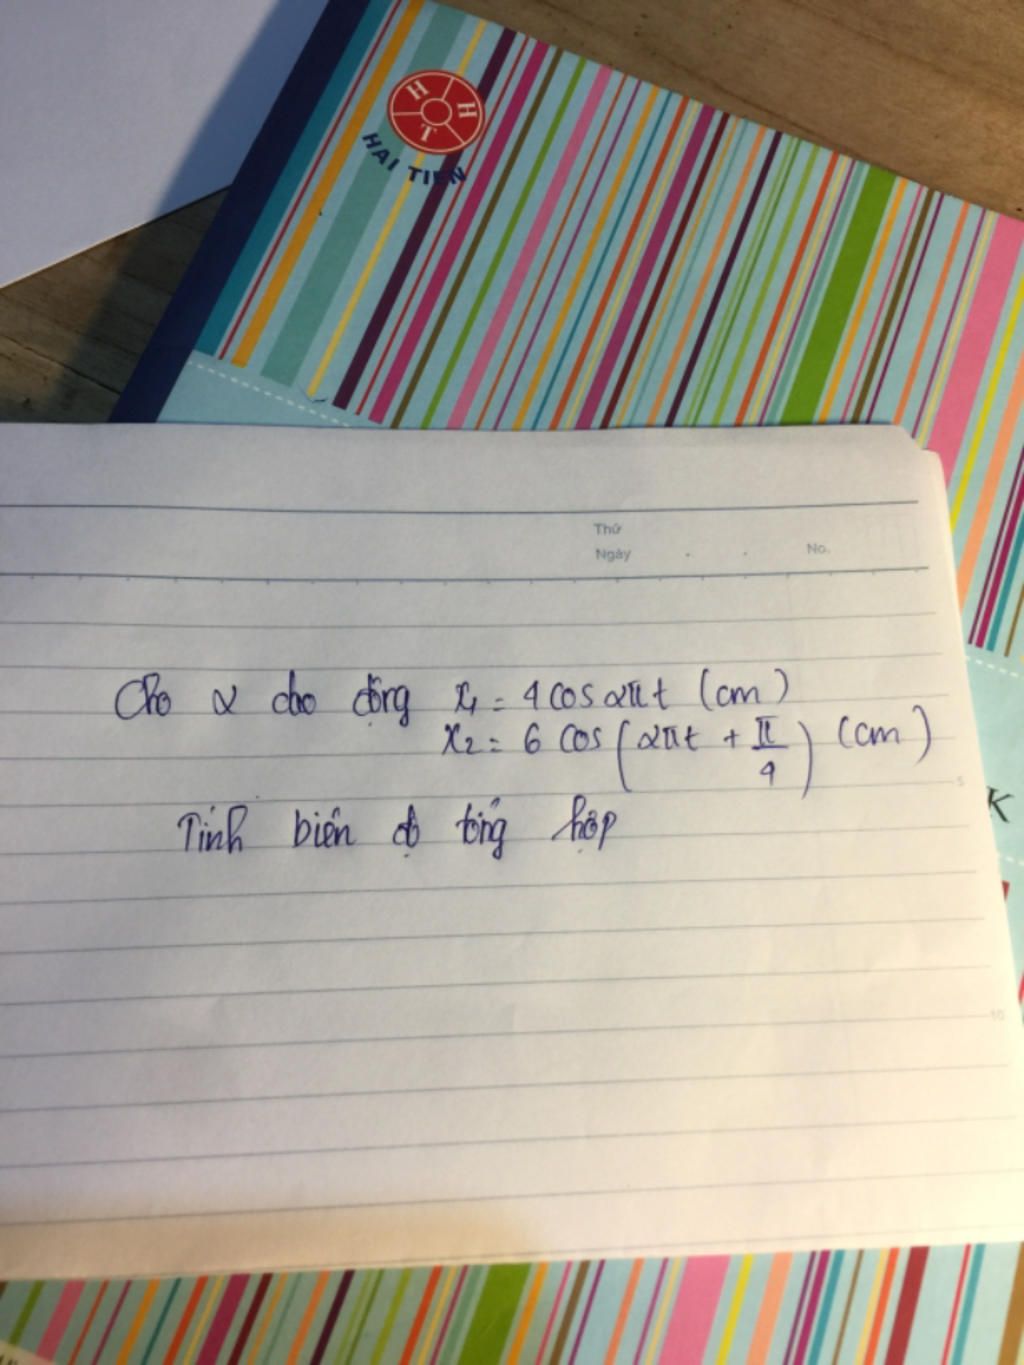 H H T
HẢI TIẾN
Thứ
Ngày . . No.
Cho 2 dao động x1 = 4 cos 2πt (cm)
x2 = 6 cos (2πt + π/4) (cm)
5
K
Tính biên độ tổng hợp
10